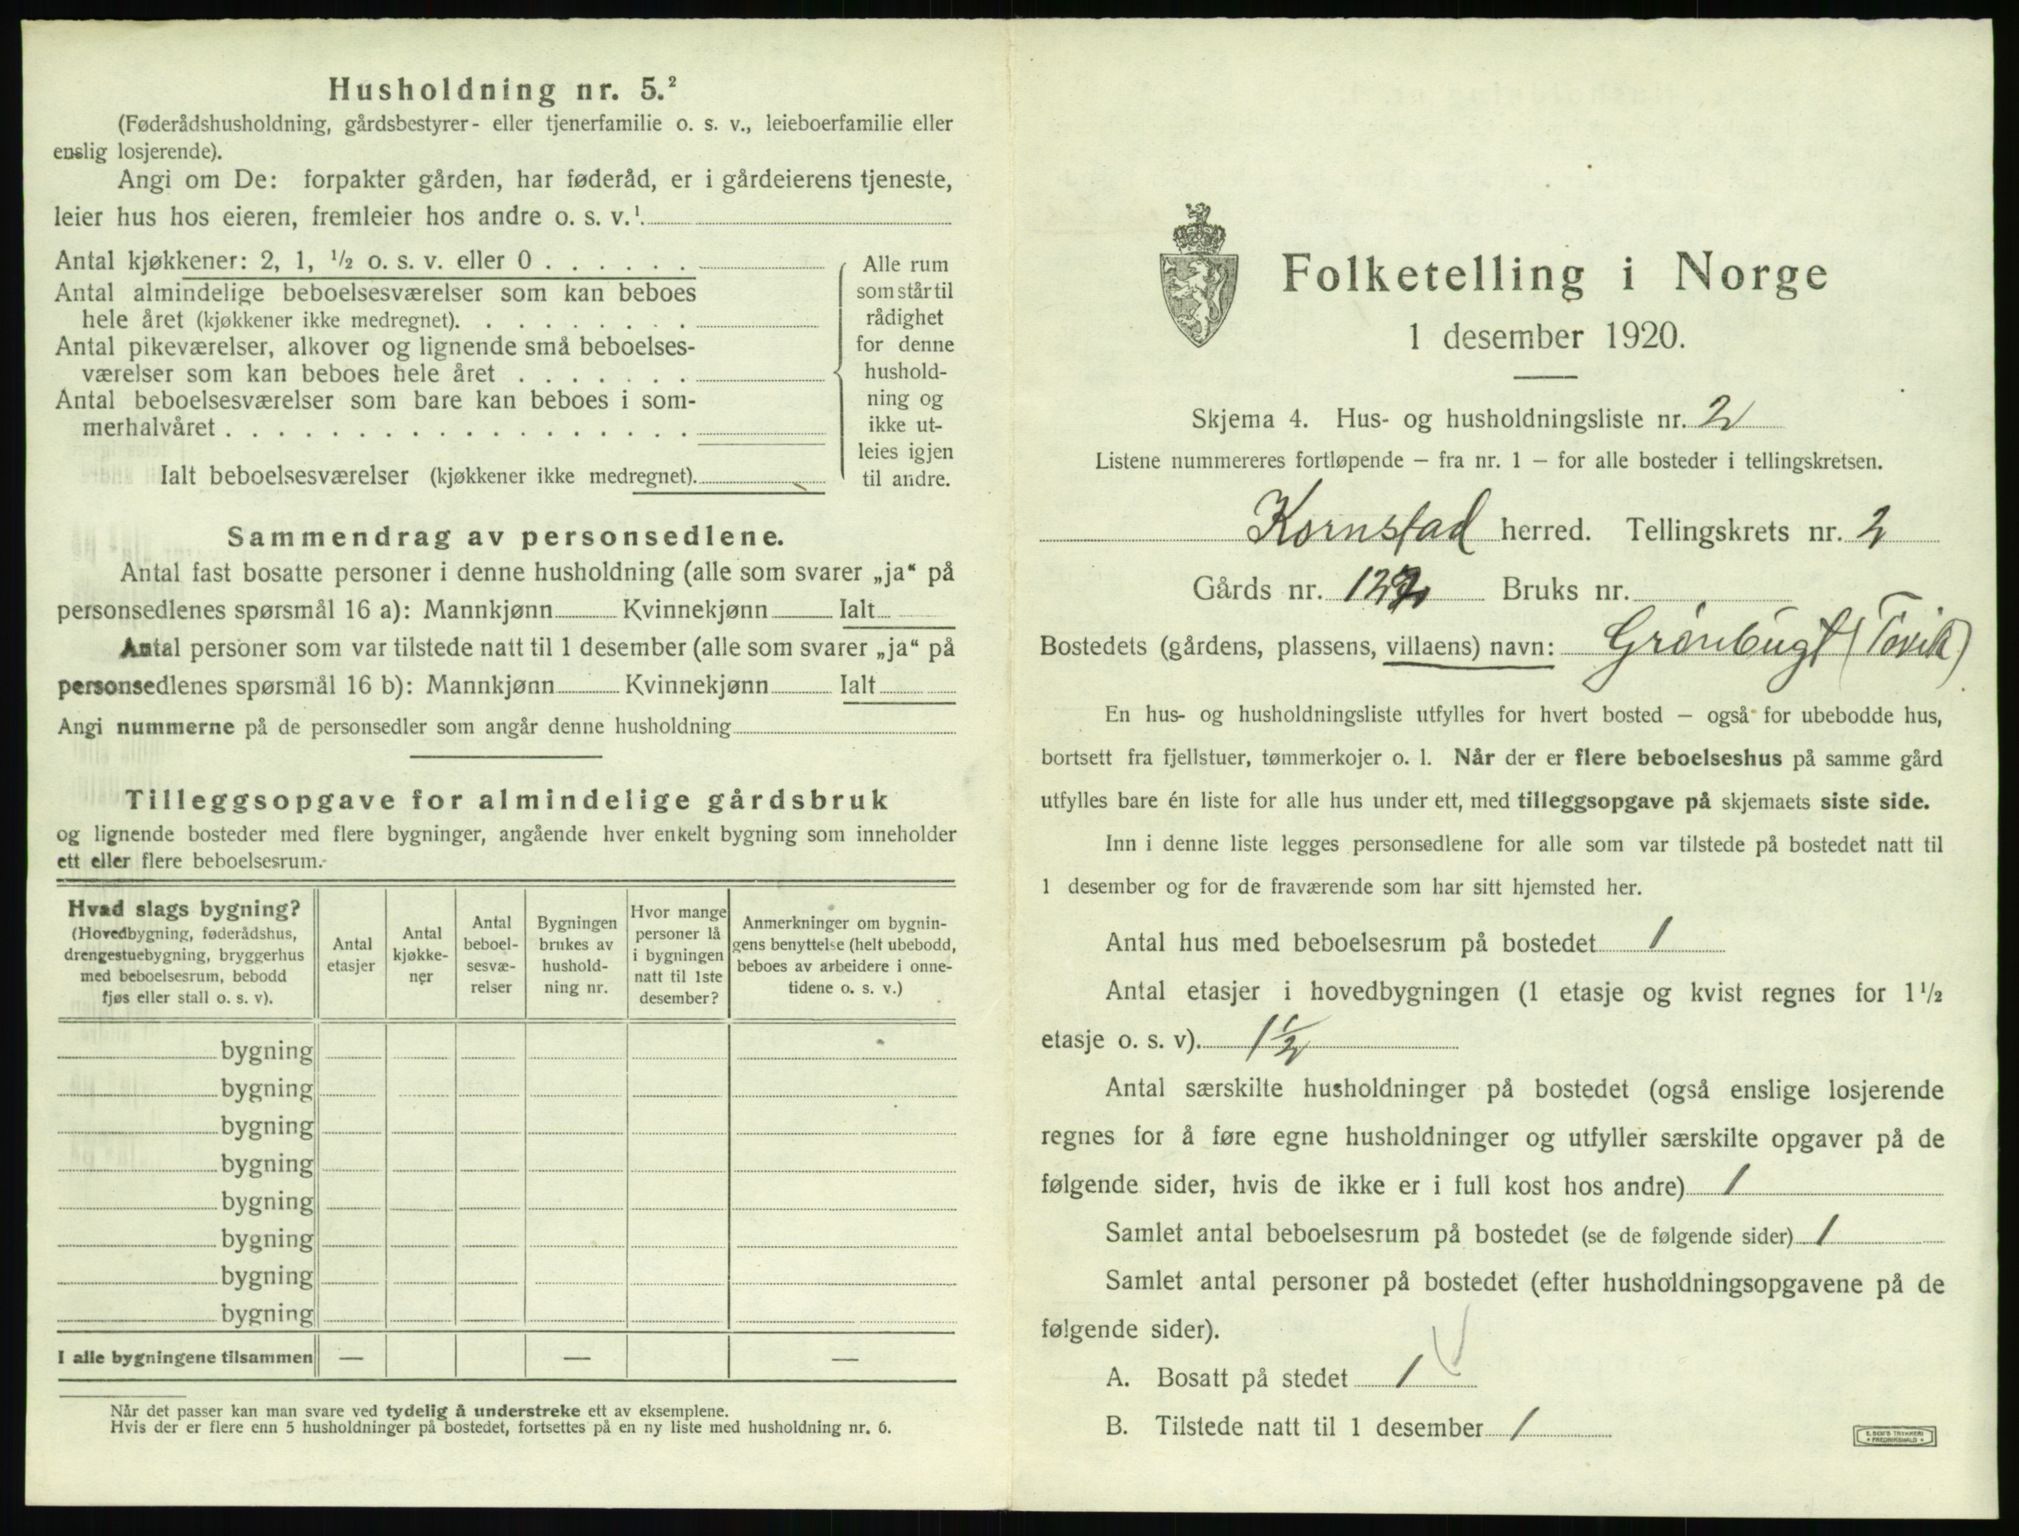 Husholdning nr. 5.²
(Føderådshusholdning, gårdsbestyrer- eller tjenerfamilie o. s. v., leieboerfamilie eller
enslig losjerende).
Angi om De: forpakter gården, har føderåd, er i gårdeierens tjeneste,
leier hus hos eieren, fremleier hos andre o. s. v.¹
Antal kjøkkener: 2, 1, ½ o. s. v. eller 0
Antal almindelige beboelsesværelser som kan beboes
hele året (kjøkkener ikke medregnet).
Antal pikeværelser, alkover og lignende små beboelses-
værelser som kan beboes hele året
Antal beboelsesværelser som bare kan beboes i som-
merhalvåret
Ialt beboelsesværelser (kjøkkener ikke medregnet).
Alle rum
som står til
rådighet
for denne
hushold-
ning og
ikke ut-
leies igjen
til andre.
Sammendrag av personsedlene.
Antal fast bosatte personer i denne husholdning (alle som svarer „ja“ på
personsedlenes spørsmål 16 a): Mannkjønn Kvinnekjønn Ialt
Antal personer som var tilstede natt til 1 desember (alle som svarer „ja“ på
personsedlenes spørsmål 16 b): Mannkjønn Kvinnekjønn Ialt
Angi nummerne på de personsedler som angår denne husholdning
Tilleggsopgave for almindelige gårdsbruk
og lignende bosteder med flere bygninger, angående hver enkelt bygning som inneholder
ett eller flere beboelsesrum.
Hvad slags bygning?
(Hovedbygning, føderådshus,
drengestuebygning, bryggerhus
med beboelsesrum, bebodd
fjøs eller stall o. s. v).
Antal
etasjer
Antal
kjøkke-
ner
Antal
beboel-
sesvæ-
relser
Bygningen
brukes av
hushold-
ning nr.
Hvor mange
personer lå
i bygningen
natt til 1ste
desember?
Anmerkninger om bygnin-
gens benyttelse (helt ubebodd,
beboes av arbeidere i onne-
tidene o. s. v.)
bygning
bygning
bygning
bygning
bygning
bygning
bygning
bygning
I alle bygningene tilsammen — — —
Når det passer kan man svare ved tydelig å understreke ett av eksemplene.
Hvis der er flere enn 5 husholdninger på bostedet, fortsettes på en ny liste med husholdning nr. 6.
Folketelling i Norge
1 desember 1920.
Skjema 4. Hus- og husholdningsliste nr. 2
Listene nummereres fortløpende — fra nr. 1 — for alle bosteder i tellingskretsen.
Kornstad herred. Tellingskrets nr. 2
Gårds nr. Bruks nr.
Bostedets (gårdens, plassens, villaens) navn: Grønbugt (Tøvik)
En hus- og husholdningsliste utfylles for hvert bosted — også for ubebodde hus,
bortsett fra fjellstuer, tømmerkojer o. l. Når der er flere beboelseshus på samme gård
utfylles bare én liste for alle hus under ett, med tilleggsopgave på skjemaets siste side.
Inn i denne liste legges personsedlene for alle som var tilstede på bostedet natt til
1 desember og for de fraværende som har sitt hjemsted her.
Antal hus med beboelsesrum på bostedet 1
Antal etasjer i hovedbygningen (1 etasje og kvist regnes for 1½
etasje o. s. v). 1½
Antal særskilte husholdninger på bostedet (også enslige losjerende
regnes for å føre egne husholdninger og utfyller særskilte opgaver på de
følgende sider, hvis de ikke er i full kost hos andre) 1
Samlet antal beboelsesrum på bostedet (se de følgende sider) 1
Samlet antal personer på bostedet (efter husholdningsopgavene på de
følgende sider).
A. Bosatt på stedet 1
B. Tilstede natt til 1 desember 1